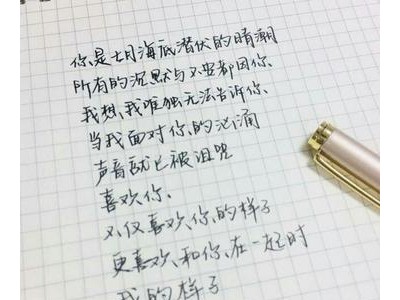 你是七月海底潜伏的暗潮
所有的沉默与不安都因你、
我想、我唯独无法告诉你、
当我面对你、的汹涌
声音就已被诅咒
喜欢你、
不仅喜欢、你、的样子
更喜欢、和你、在一起时
我的样子